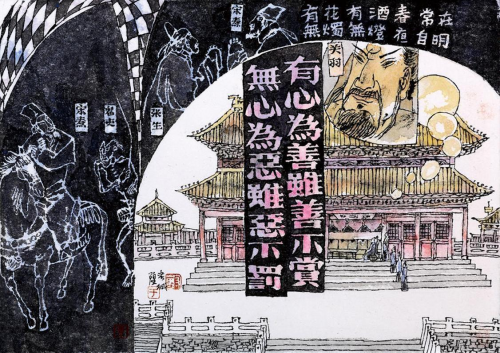 有花有酒春常在
無燭無燈夜自明
有心為善雖善不賞
無心為惡雖惡不罰
宋燾
宋燾
張生